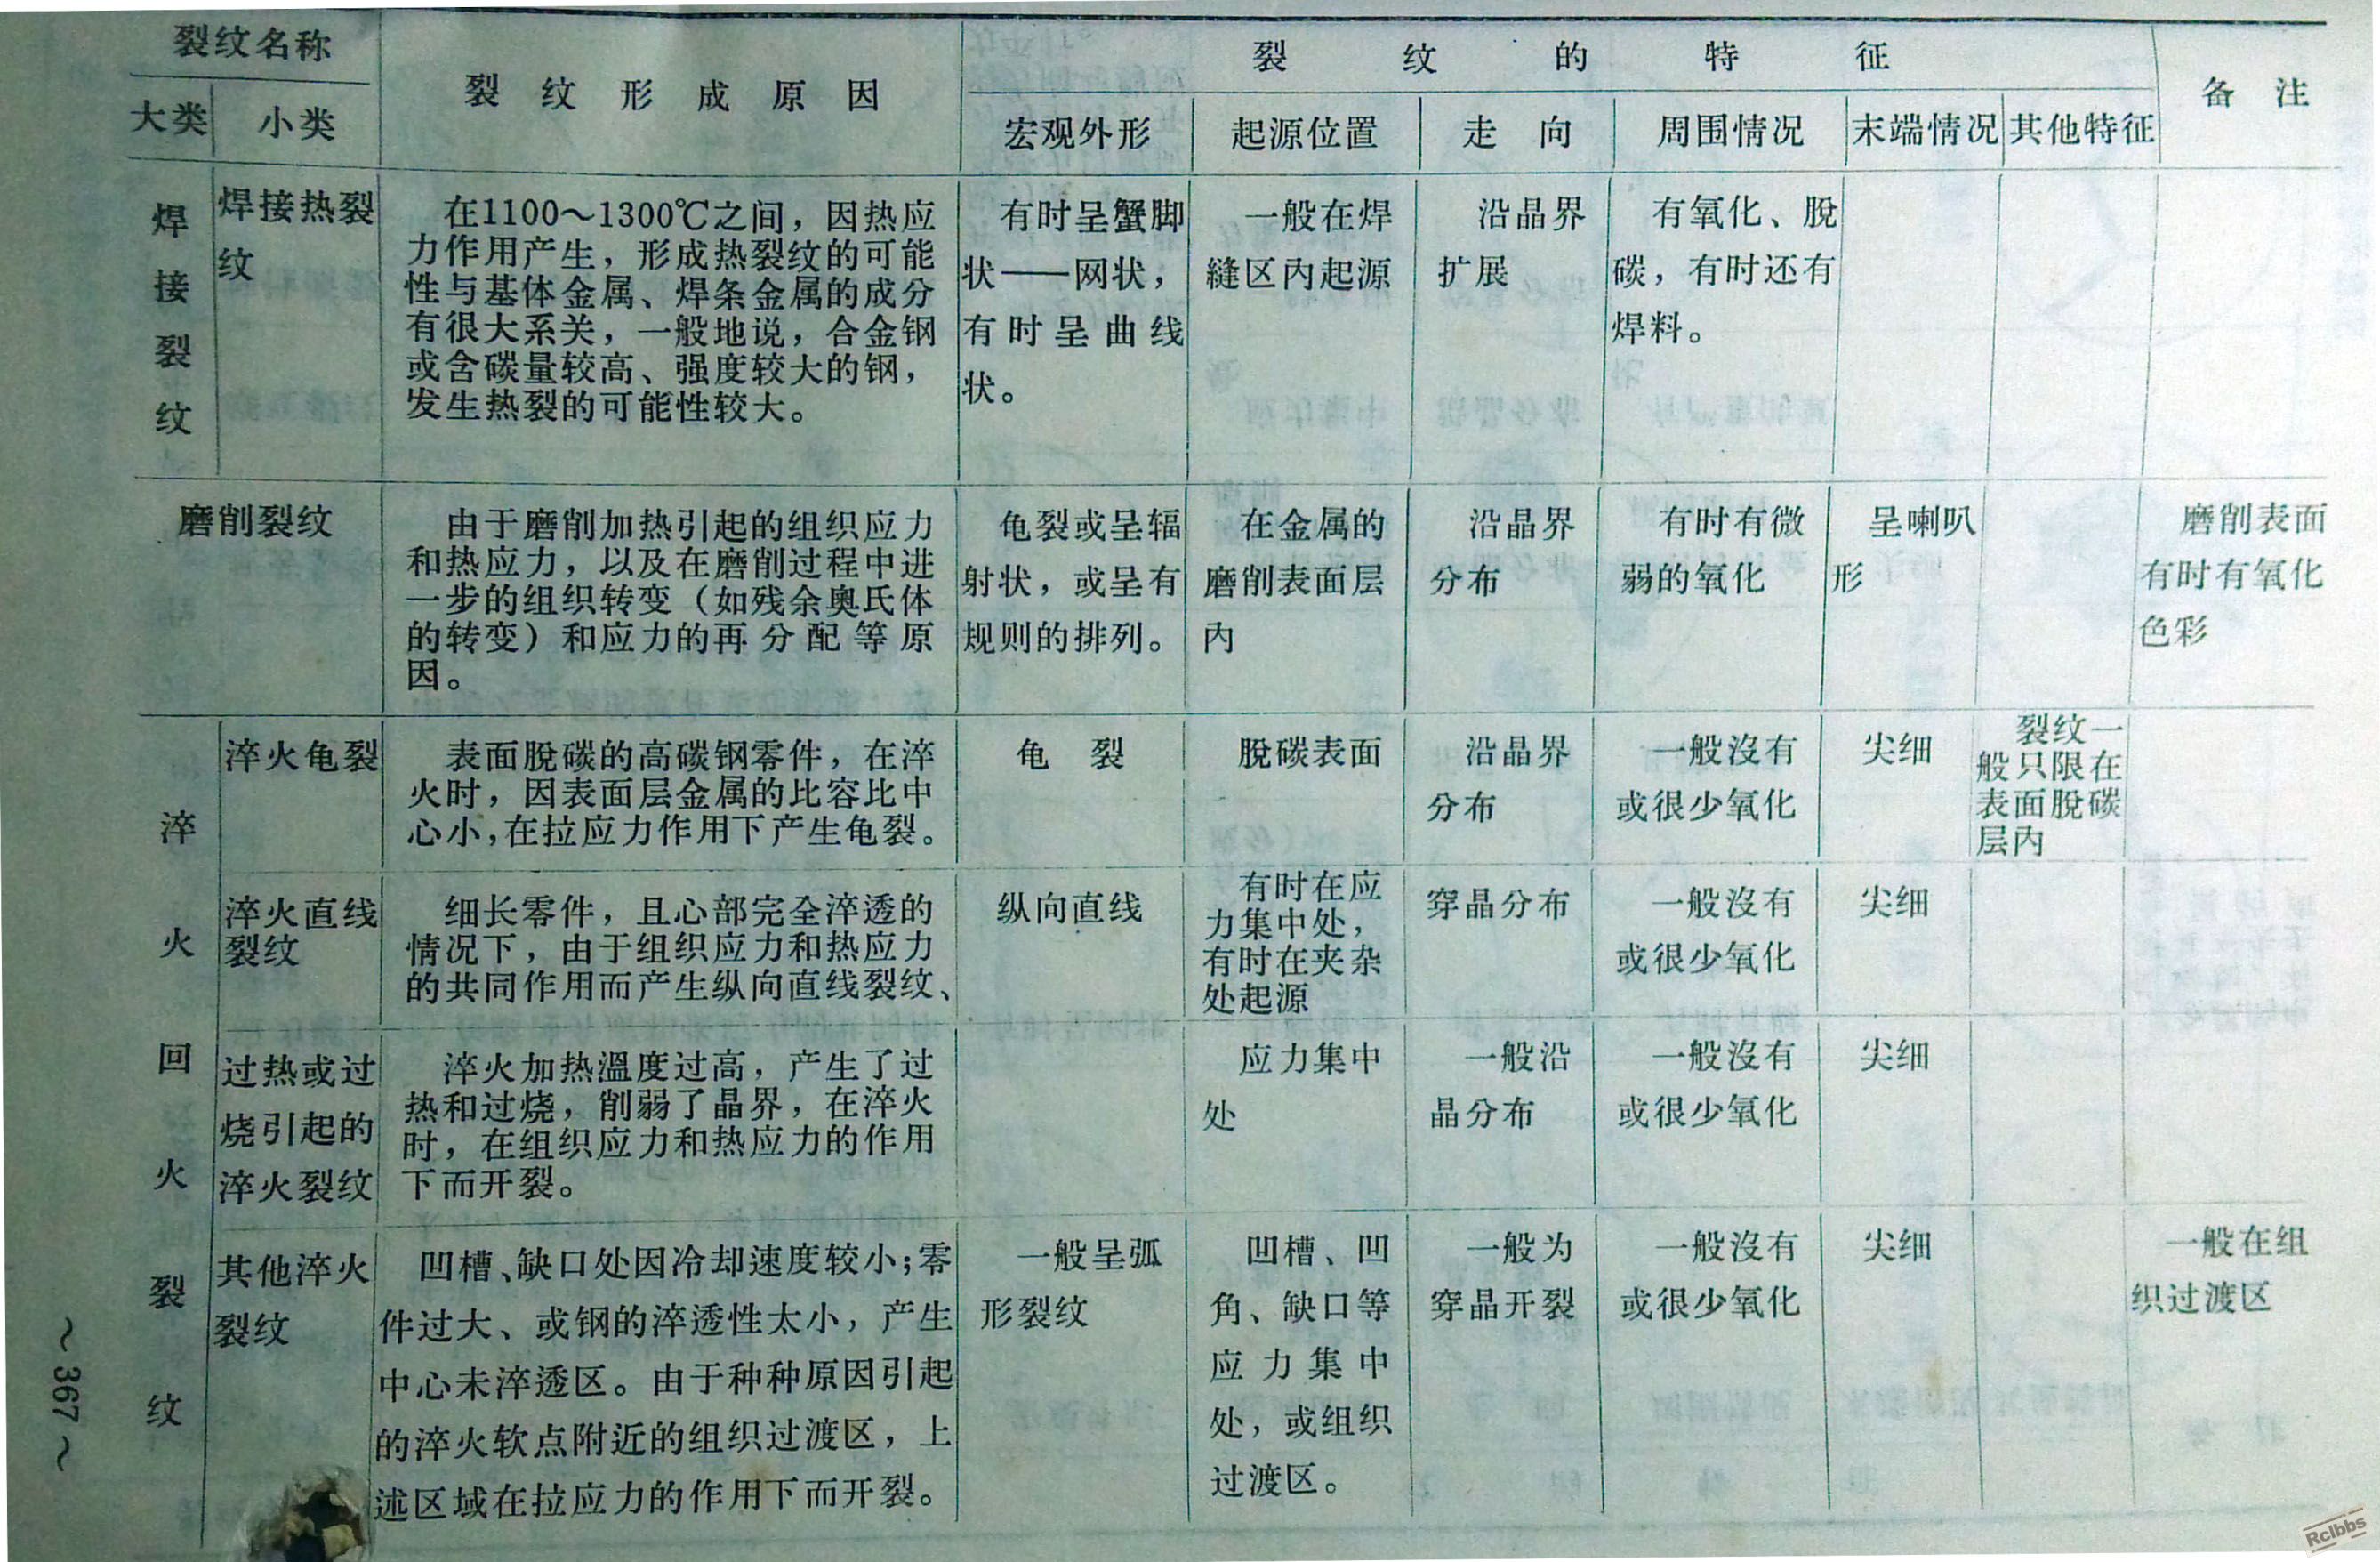 裂纹名称
裂纹形成原因
裂纹的特征
备注
大类
小类
宏观外形
起源位置
走向
周围情况
末端情况
其他特征
焊接裂纹
焊接热裂
纹
在1100～1300℃之间，因热应
力作用产生，形成热裂纹的可能
性与基体金属、焊条金属的成分
有很大系关，一般地说，合金钢
或含碳量较高、强度较大的钢，
发生热裂的可能性较大。
有时呈蟹脚
状——网状，
有时呈曲线
状。
一般在焊
縫区内起源
沿晶界
扩展
有氧化、脫
碳，有时还有
焊料。
磨削裂纹
由于磨削加热引起的组织应力
和热应力，以及在磨削过程中进
一步的组织转变（如残余奥氏体
的转变）和应力的再分配等原
因。
龟裂或呈辐
射状，或呈有
规则的排列。
在金属的
磨削表面层
内
沿晶界
分布
有时有微
弱的氧化
呈喇叭
形
磨削表面
有时有氧化
色彩
淬火回火裂纹
淬火龟裂
表面脫碳的高碳钢零件，在淬
火时，因表面层金属的比容比中
心小，在拉应力作用下产生龟裂。
龟裂
脫碳表面
沿晶界
分布
一般沒有
或很少氧化
尖细
裂纹一
般只限在
表面脫碳
层内
淬火直线
裂纹
细长零件，且心部完全淬透的
情况下，由于组织应力和热应力
的共同作用而产生纵向直线裂纹、
纵向直线
有时在应
力集中处，
有时在夹杂
处起源
穿晶分布
一般沒有
或很少氧化
尖细
过热或过
烧引起的
淬火裂纹
淬火加热溫度过高，产生了过
热和过烧，削弱了晶界，在淬火
时，在组织应力和热应力的作用
下而开裂。
应力集中
处
一般沿
晶分布
一般沒有
或很少氧化
尖细
其他淬火
裂纹
凹槽、缺口处因冷却速度较小；零
件过大、或钢的淬透性太小，产生
中心未淬透区。由于种种原因引起
的淬火软点附近的组织过渡区，上
述区域在拉应力的作用下而开裂。
一般呈弧
形裂纹
凹槽、凹
角、缺口等
应力集中
处，或组织
过渡区。
一般为
穿晶开裂
一般沒有
或很少氧化
尖细
一般在组
织过渡区
～367～
Rclbbs